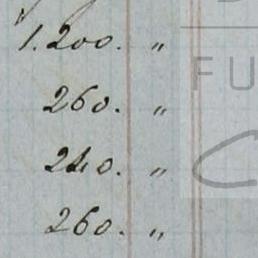 1.200. "
260. "
240. "
260. "
FU